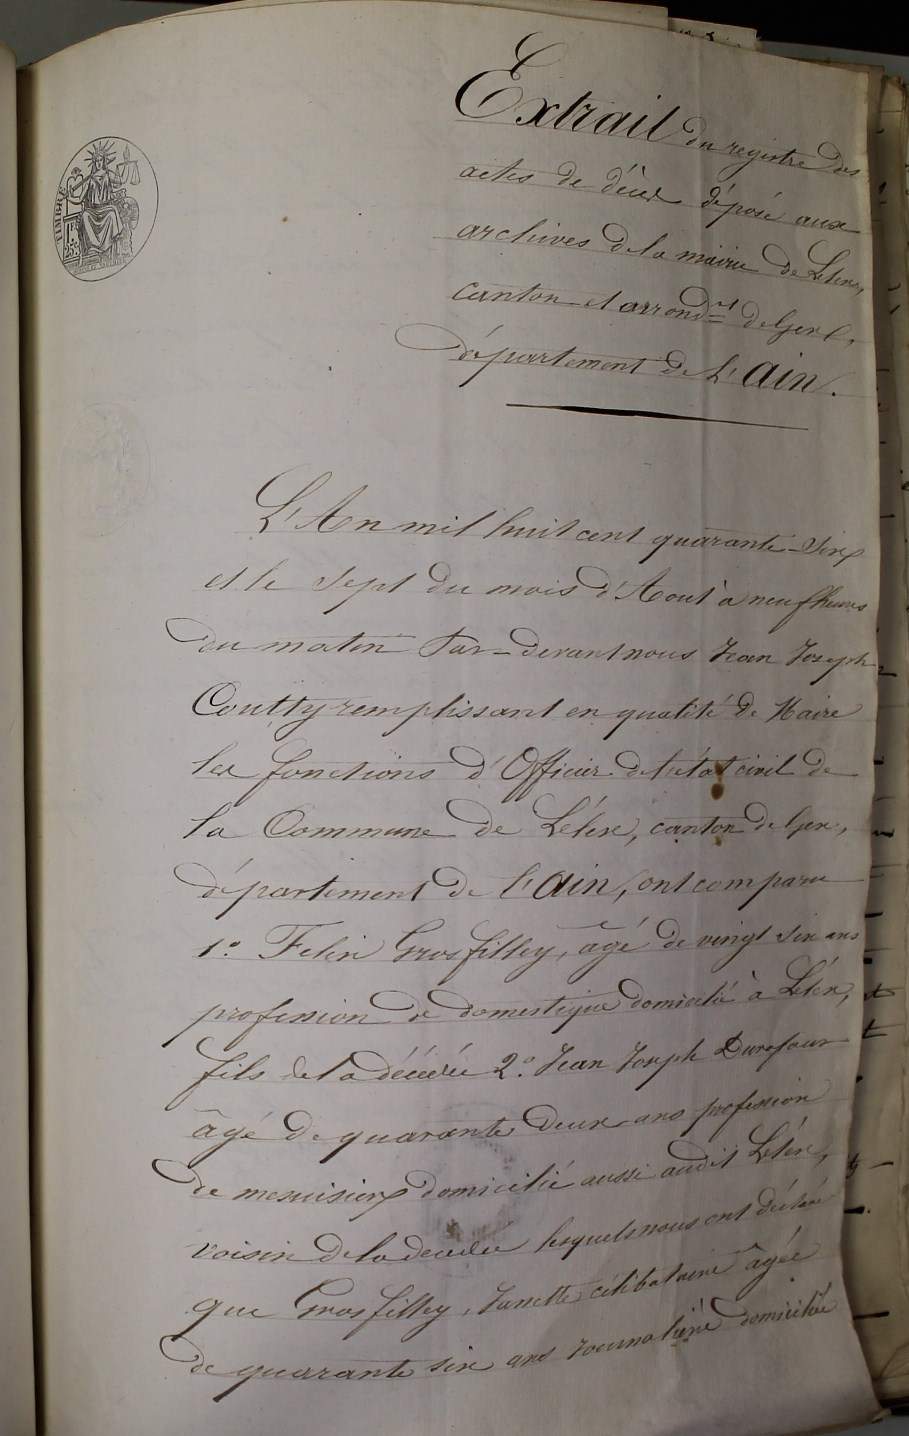 TIMBRE
Extrait du registre des
actes de décès déposé aux
archives de la mairie de Lélex,
canton et arrond.nt de Gex,
département de L'ain.
L'An mil huit cent quarante-six
et le Sept du mois d'Aout à neuf heures
du matin Par-devant nous Jean Joseph
Coutty remplissant en qualité de Maire
les fonctions d'Officier de l'état civil de
la Commune de Lélex, canton de Gex,
département de l'ain, ont comparu
1.o Felix Grosfilley, âgé de vingt six ans
profession de domestique domicilié à Lélex,
fils de la décédée 2.o Jean Joseph Durafour
âgé de quarante deux ans profession
de menuisier domicilié aussi audit Lélex,
voisin de la décédée lesquels nous ont déclaré
que Grosfilley, Jannette célibataire âgée
de quarante six ans journalière domiciliée